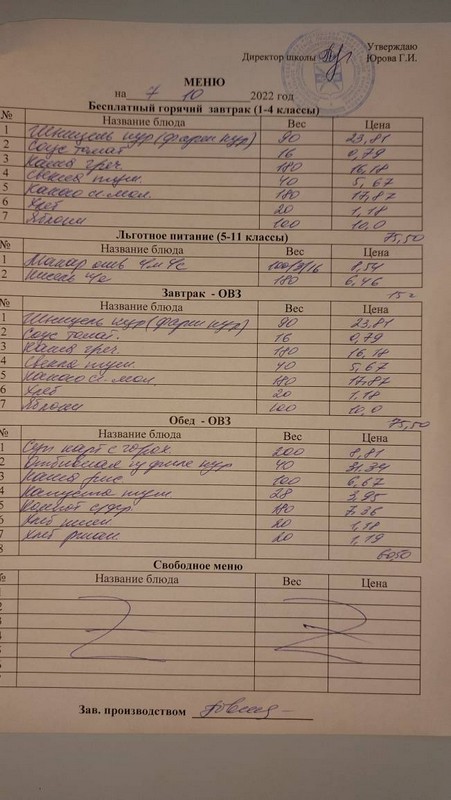 Утверждаю
Директор школы Юрова Г.И.
МЕНЮ
на 7 10 2022 год
Бесплатный горячий завтрак (1-4 классы)
№ Название блюда Вес Цена
1 Шницель кур (фарш кур) 90 23,81
2 Соус томат 16 0,79
3 Каша греч. 180 16,18
4 Свекла туш. 40 5,67
5 Какао с мол. 180 17,87
6 Хлеб 20 1,18
7 Яблоки 100 10,0
75,50
Льготное питание (5-11 классы)
№ Название блюда Вес Цена
1 Макар 8,54
2 180 6,46
15
Завтрак - ОВЗ
№ Название блюда Вес Цена
1 Шницель кур (фарш кур) 90 23,81
2 Соус томат. 16 0,79
3 Каша греч. 180 16,18
4 Свекла туш. 40 5,67
5 Какао с мол. 180 17,87
6 Хлеб 20 1,18
7 Яблоки 100 10,0
75,50
Обед - ОВЗ
№ Название блюда Вес Цена
1 Суп карт с горох. 200 8,81
2 Отбивная филе кур 40 31,34
3 Каша рис 100 6,67
4 Капуста туш 28 3,95
5 Компот с/фр 180 7,36
6 Хлеб пшен 20 1,18
7 Хлеб ржан. 20 1,19
8 60,50
Свободное меню
№ Название блюда Вес Цена
Зав. производством